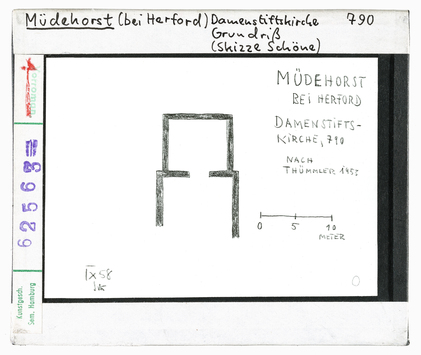 Müdehorst (bei Herford) Damenstiftskirche 790
Grundriß
(Skizze Schöne)
MÜDEHORST
BEI HERFORD
DAMENSTIFTS-
KIRCHE, 790
NACH
THÜMMLER 1955
0 5 10
METER
IX 58
0
62563
Kunstgesch.
Sem. Hamburg